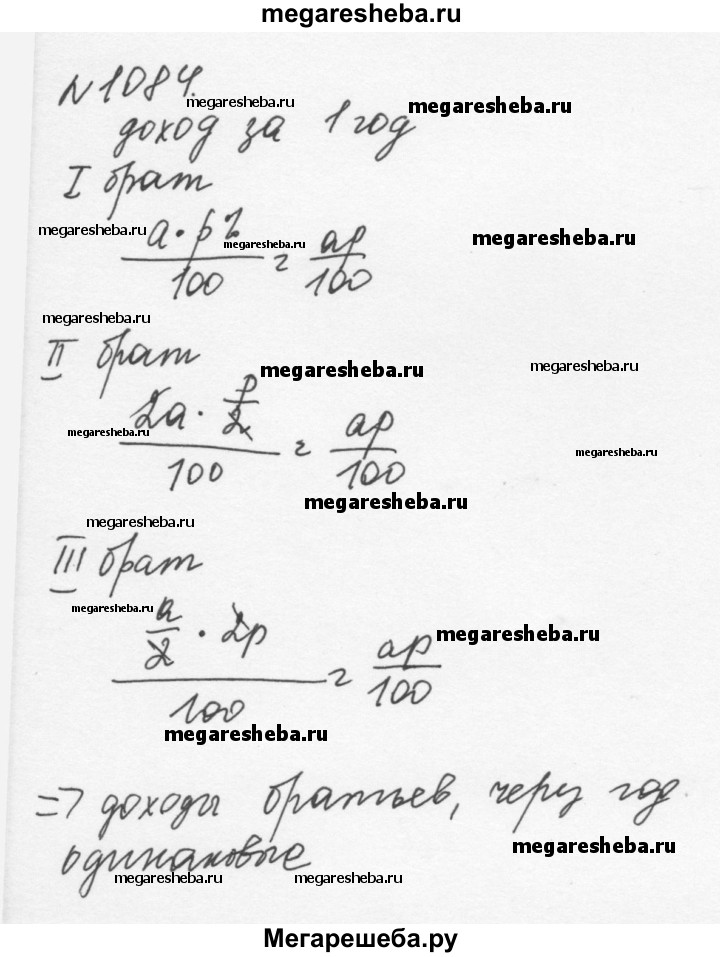 megaresheba.ru
N1084.
megaresheba.ru megaresheba.ru
доход за 1 год
I брат
megaresheba.ru a · p% / 100 = ap / 100 megaresheba.ru megaresheba.ru
megaresheba.ru
II брат megaresheba.ru megaresheba.ru
megaresheba.ru 2a · p/2 / 100 = ap / 100 megaresheba.ru
megaresheba.ru
megaresheba.ru
III брат
megaresheba.ru
a/2 · 2p / 100 = ap / 100 megaresheba.ru
megaresheba.ru
=> доходы братьев, через год
одинаковые megaresheba.ru
megaresheba.ru megaresheba.ru
Мегарешеба.ру